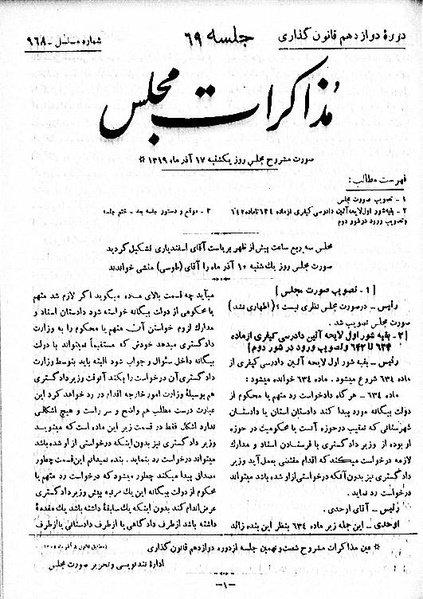 دورهٔ دوازدهم قانون گذاری
جلسه ۶۹
شماره مسلسل - ۹۶۸
مذاکرات مجلس
صورت مشروح مجلس روز یکشنبه ۱۷ آذر ماه ۱۳۱۹ *
فهرست مطالب:
۱ - تصویب صورت مجلس
۲ - بقیه شور اول لایحه آئین دادرسی کیفری از ماده ۶۳۴ تا ماده ۶۴۲
وتصویب ورود در شور دوم
۳ - موقع و دستور جلسه بعد - ختم جلسه
مجلس سه ربع ساعت پیش از ظهر بریاست آقای اسفندیاری تشکیل گردید
صورت مجلس روز یک شنبه ۱۰ آذر ماه را آقای (طوسی) منشی خواندند
[ ۱ - تصویب صورت مجلس ]
رئیس - در صورت مجلس نظری نیست؟ (اظهاری نشد)
صورت مجلس تصویب شد.
[ ۲ - بقیه شور اول لایحه آئین دادرسی کیفری از ماده
۶۳۴ تا ۶۴۲ و تصویب ورود در شور دوم ]
رئیس - بقیه شور اول لایحه آئین دادرسی کیفری از
ماده ۶۳۴ شروع میشود. ماده ۶۳۴ خوانده میشود:
ماده ۶۳۴ - هر گاه دادخواست رد متهم یا محکوم از
دولت بیگانه مورد پیدا کند دادستان استان یا دادستان
شهرستانی که تعقیب در حوزه آنست یا محکومیت در حوزه
او بوده از وزیر دادگستری با فرستادن اسناد و مدارک
لازمه درخواست میکند که اقدام مقتضی بعمل آید وزیر
دادگستری نیز بدون آنکه درخواستی از او شده باشد میتواند
درخواست رد نماید.
رئیس - آقای اوحدی.
اوحدی - این جمله زیر ماده ۶۳۴ بنظر این بنده زائد
میآید چه قسمت بالای ماده میگوید اگر لازم شد متهم
یا محکومی از دولت بیگانه خواسته شود دادستان اسناد و
مدارک لزوم خواستن آن متهم یا محکوم را به وزارت
دادگستری میدهد خودش که مستقیماً نمیتواند با دولت
بیگانه داخل سؤال و جواب شود البته باید بتوسط وزارت
دادگستری آن درخواست را بکند آنوقت وزیر دادگستری
هم بوسیلهٔ وزارت امور خارجه اقدام در رد خواهد کرد این
عبارت درست مطلب هم واضح و سر راست و هیچ اشکالی
ندارد اشکال فقط در قسمت زیر این ماده است که مینویسد
وزیر دادگستری نیز بدون اینکه درخواستی از او شده باشد
میتواند درخواست رد بنماید. بنده نمیدانم این قسمت چطور
مصداق پیدا میکند چطور میشود که درخواست رد متهم یا
محکوم از دولت بیگانه این یک مرتبه پیش وزیر دادگستری
عرض اندام کند بدون اینکه یک سابقهٔ داشته باشد یک مقدمهٔ
داشته باشد از طرف دادگاهی یا از طرف دادستانی یا از طرف
* عین مذاکرات مشروح شصت و نهمین جلسه از دوره دوازدهم قانون گذاری
ادارهٔ تند نویسی و تحریر صورت مجلس
- ۱ -